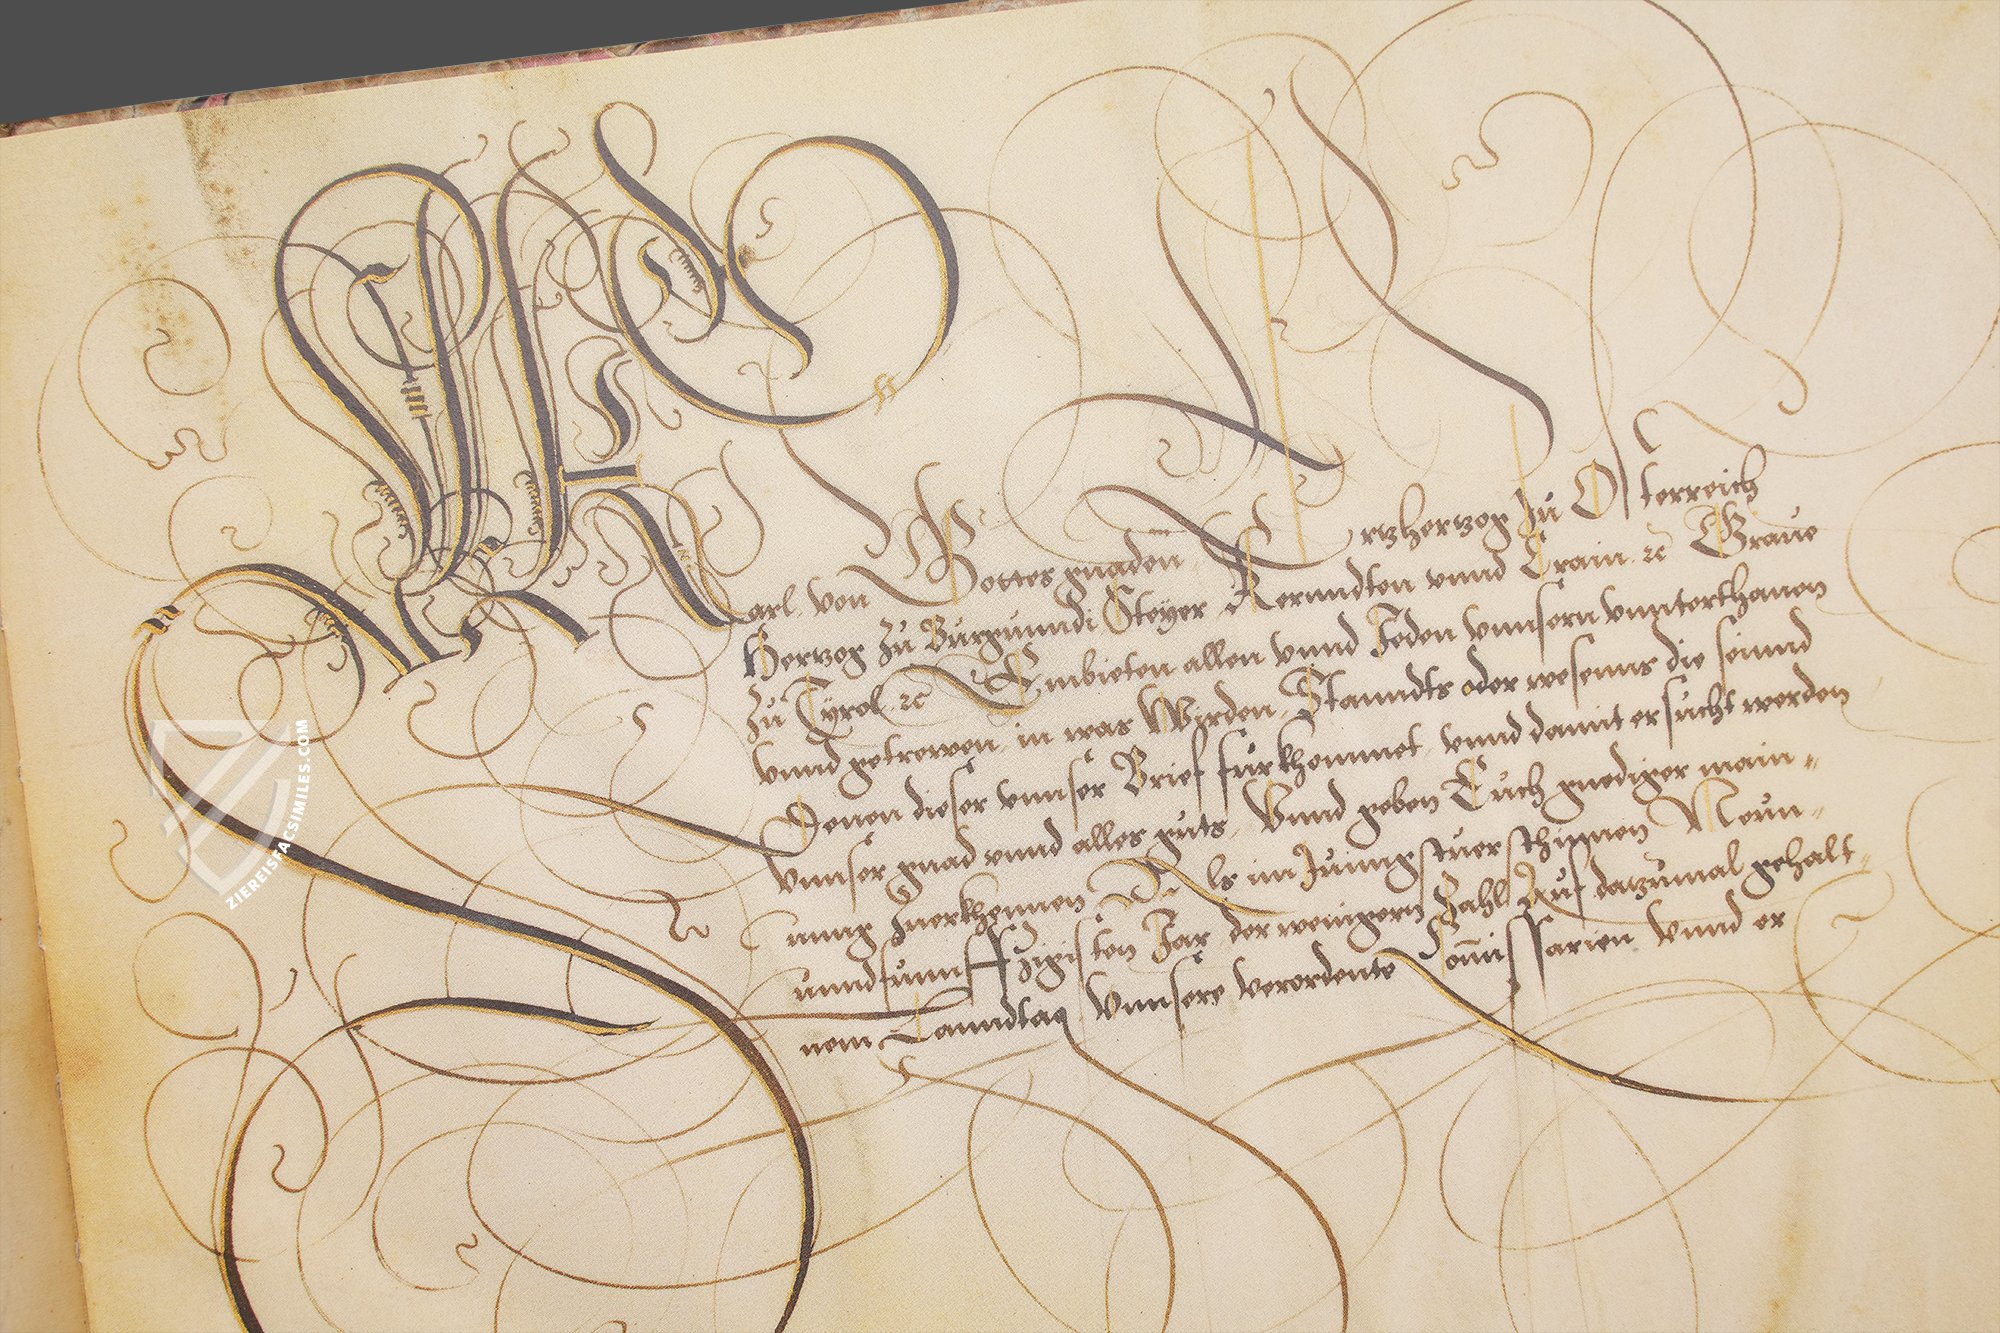 Wir Karl von Gottes gnaden Ertzhertzog zu Osterreich
Hertzog zu Burgunndi Steyer Kernndten vnnd Crain ⁊c Graue
zu Tyrol ⁊c Embieten allen vnnd Jeden vnnsern vnnterthanen
vnnd getrewen in was Wirden Stanndts oder wesenns die seinnd
Denen dieser vnnser Brief furkhommet vnnd damit ersucht werden
vnnser gnad vnnd alles guts Vnnd geben Euch gnediger main=
nung Zuerkhennen Als im Junngstuerschinnen Neun=
unndfunnfftzigisten Jar der wenigern Zahl Auf datzumal gehalt=
nem Lanndtag Vnnsere verordente Commissarien Vnnd er
ZIEREISFACSIMILES.COM